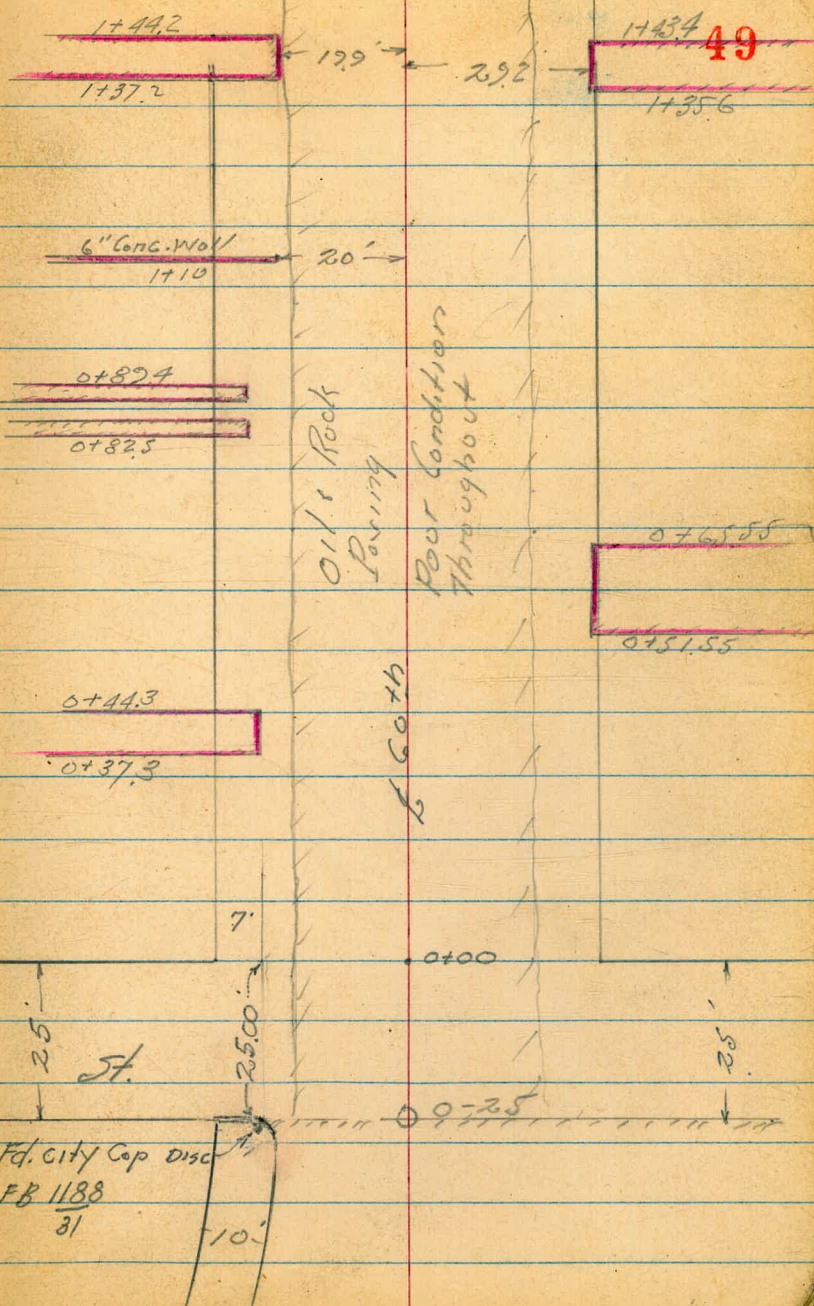 49
1+44.2
19.9'
1+43.4
29.2
1+37.2
1+35.6
6" Conc. Wall
20'
1+10
0+89.4
0+82.5
Oil & Rock
Paving
Poor Condition
Throughout
0+65.55
0+51.55
0+44.3
0+37.3
℄ 60th
7'
0+00
25'
25.00'
25'
St.
0-25
Fd. City Cop Disc
FB 1188
31
10'